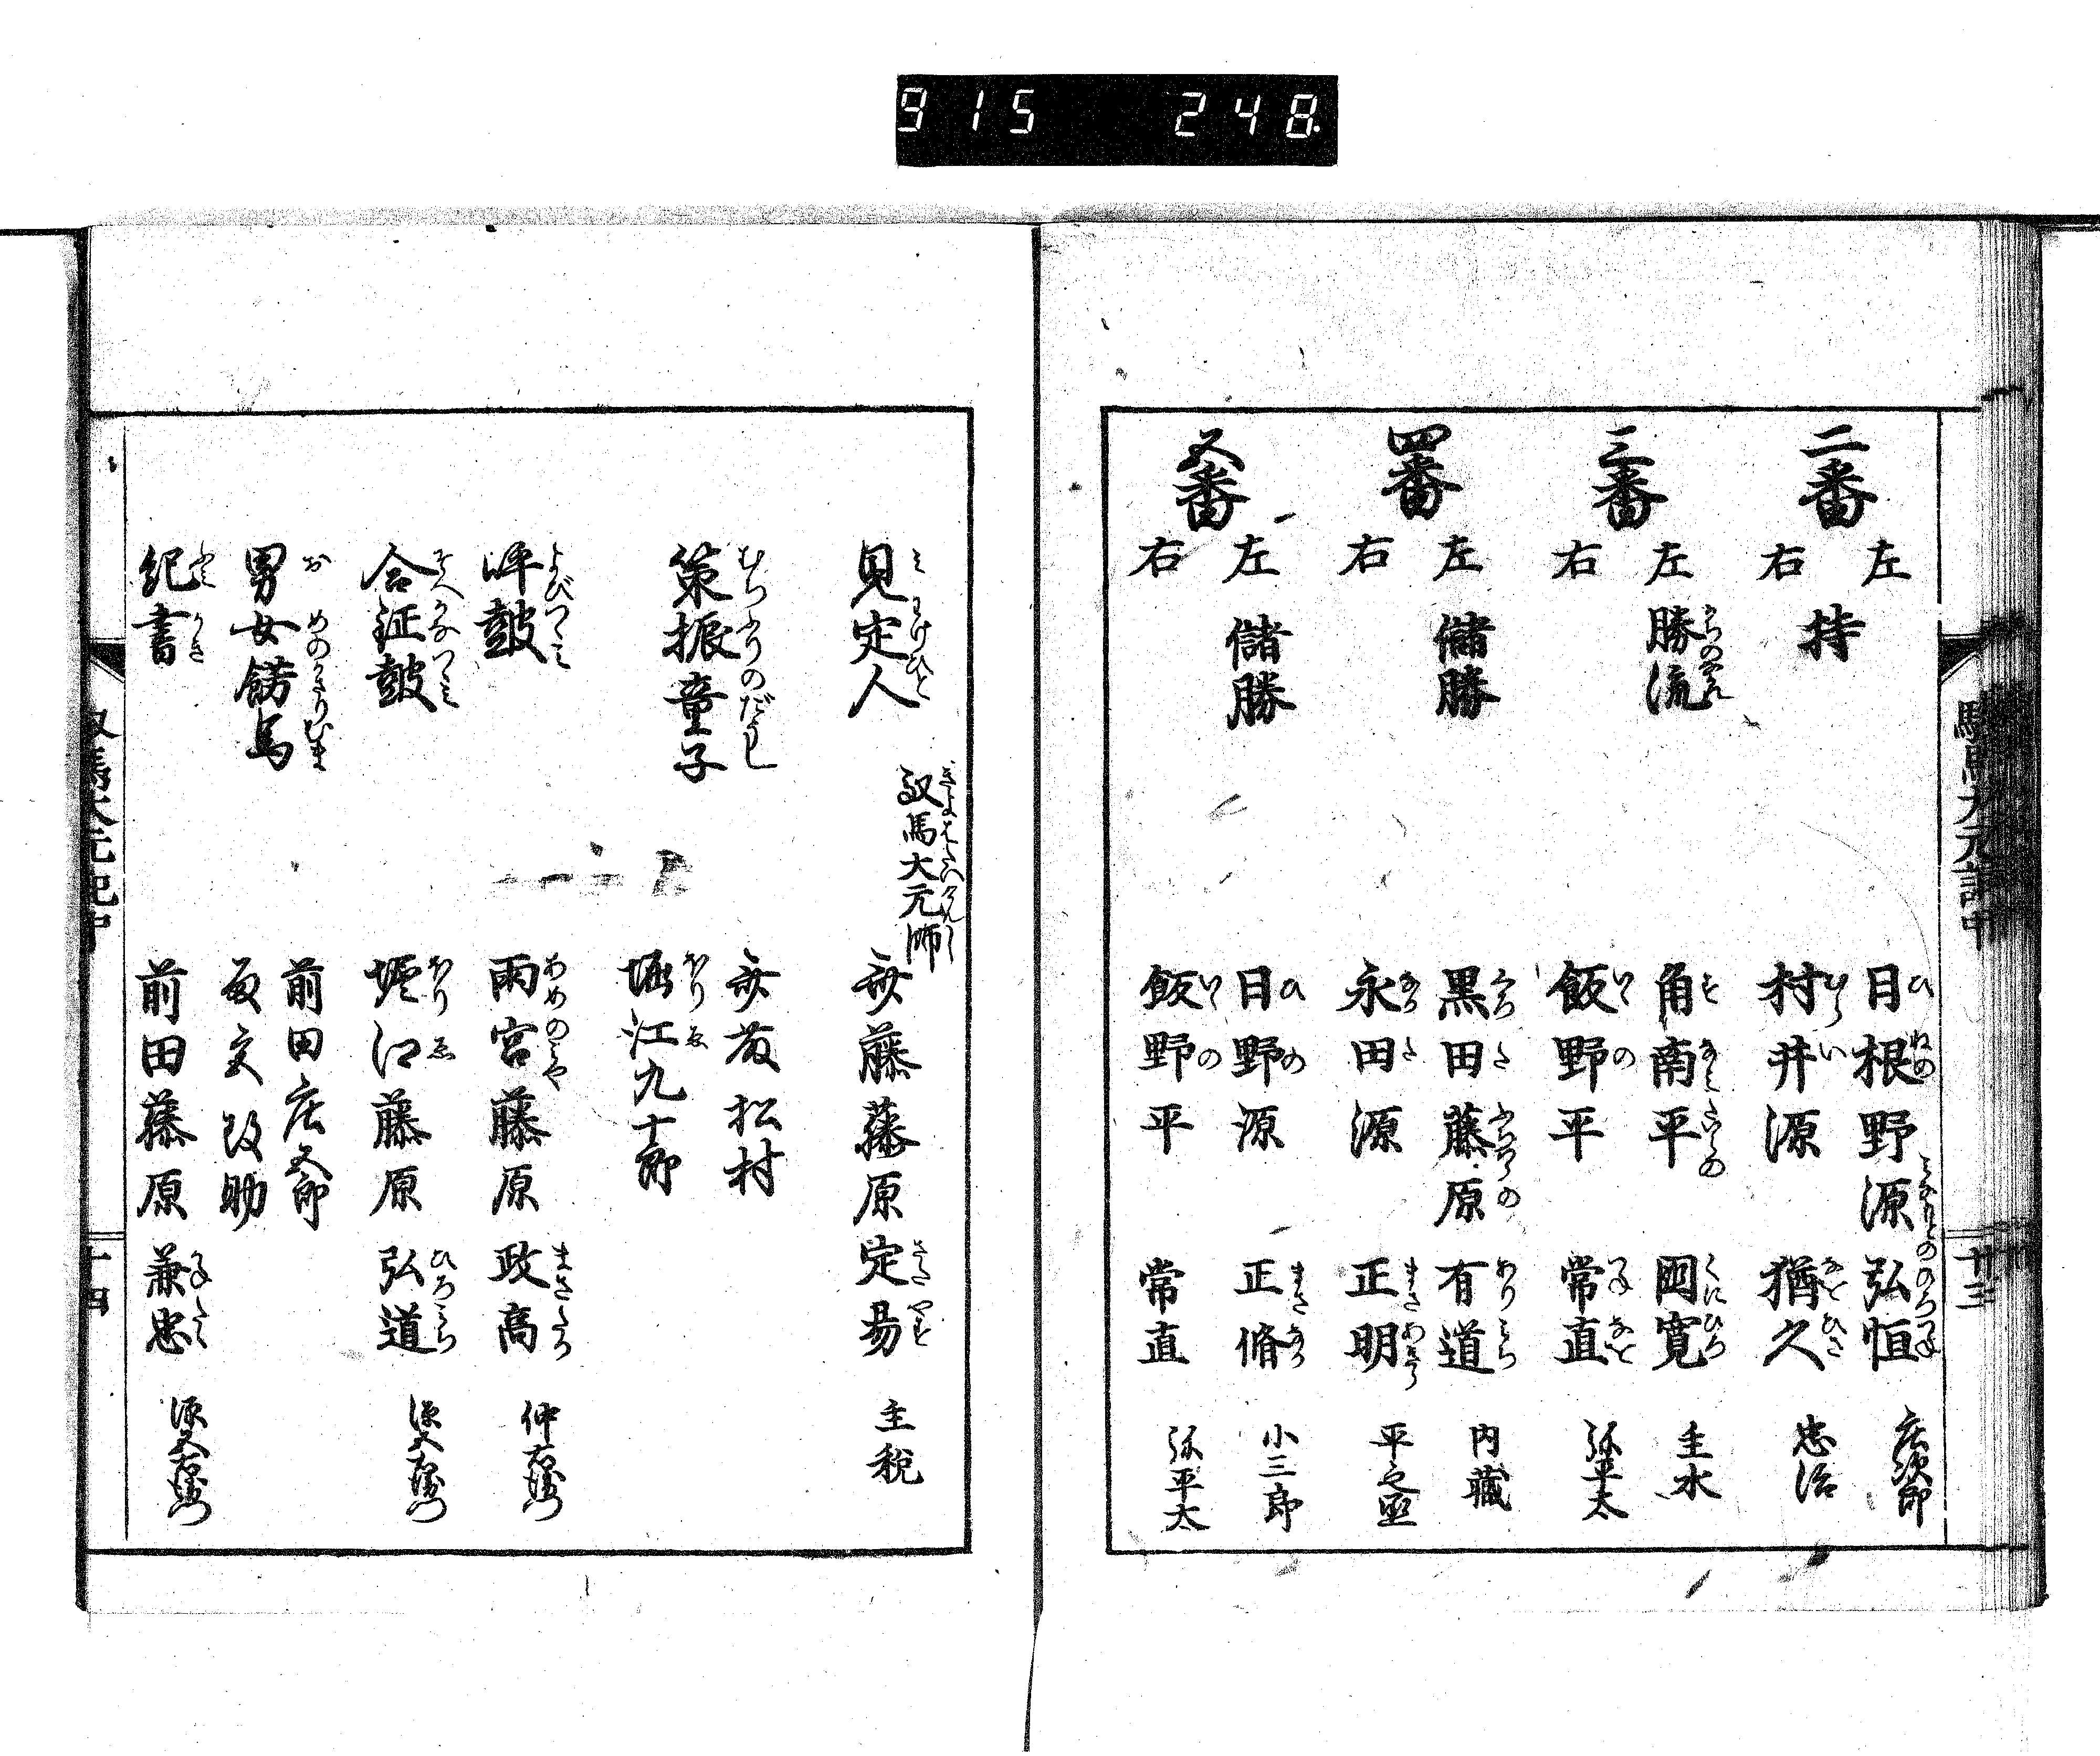 915 248
二番
左 持 日根野源弘恒 庄次郎
右 村井源猶久 忠治
三番
左 勝流 角南平国寛 主水
右 飯野平常直 弥平太
四番
左 儲勝 黒田藤原有道 内蔵
右 永田源正明 平之丞
五番
左 儲勝 日野源正脩 小三郎
右 飯野平常直 弥平太
見定人 馭馬大元師 斎藤藤原定易 主税
策振童子 斎藤松村
堀江九十郎
呼鼓 雨宮藤原政高 仲右衛門
合鉦鼓 堀江藤原弘道 源五右衛門
男女餝馬 前田庄五郎
政助
紀書 前田藤原兼忠 源五右衛門
馭馬大元記中
十四